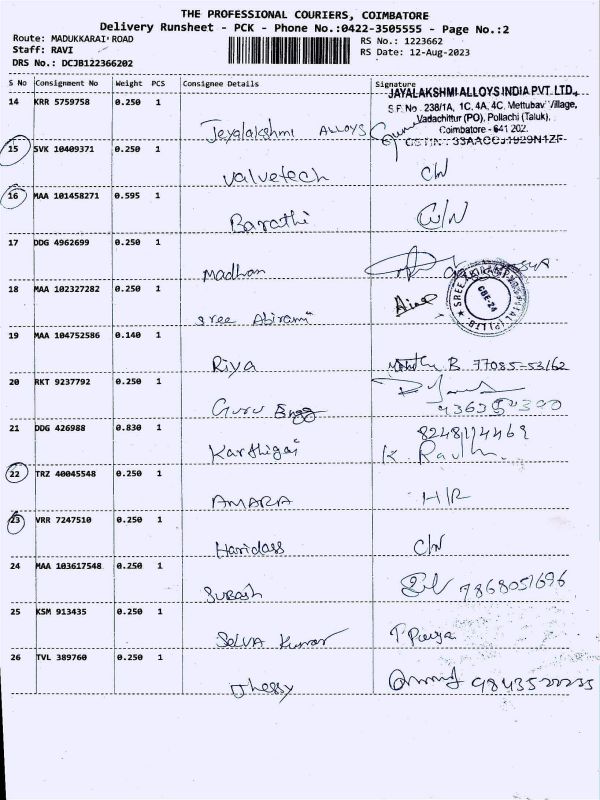 THE PROFESSIONAL COURIERS, COIMBATORE
Delivery Runsheet - PCK - Phone No.:0422-3505555 - Page No.:2
Route: MADUKKARAI ROAD
RS No.: 1223662
Staff: RAVI
RS Date: 12-Aug-2023
DRS No.: DCJB122366202
S No Consignment No Weight PCS Consignee Details Signature
JAYALAKSHMI ALLOYS INDIA PVT. LTD.,
S.F.No. 238/1A, 1C, 4A, 4C, Mettubavi Village,
Vadachittur (PO), Pollachi (Taluk),
Coimbatore - 641 202.
GSTIN : 33AACCJ1929N1ZF
14 KRR 5759758 0.250 1
Jeyalakshmi ALLOYS
15 SVK 10409371 0.250 1
Valvetech C/N
16 MAA 101458271 0.595 1
Barathi C/N
17 DDG 4962699 0.250 1
Madhan
18 MAA 102327282 0.250 1
Sree Abirami
SREE ABIRAMI HOSPITAL (P) LTD. CBE-24
19 MAA 104752586 0.140 1
Riya B. 77085-53162
20 RKT 9237792 0.250 1
Guru Engg
21 DDG 426988 0.830 1
8248114469
Karthigai K.
22 TRZ 40045548 0.250 1
AMARA H/R
23 VRR 7247510 0.250 1
Haridass C/N
24 MAA 103617548 0.250 1
Subash 7868051696
25 KSM 913435 0.250 1
Selva Kumar T. Priya
26 TVL 389760 0.250 1
Jhessy